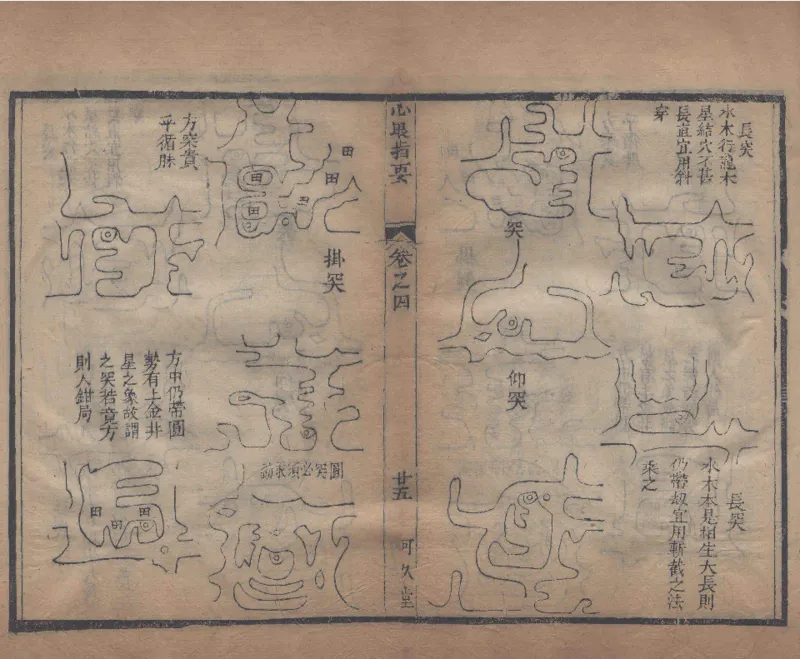 長突
水木行龍木
星結穴不甚
長直宜用斜
穿
突
仰突
長突
水木本是相生大長則
仍帶刼宜用斬截之法
乘之
心眼指要
卷之四
廿五
可久堂
掛突
田
田
田
田
圓突必須求動
方突貴
乎循脉
方中仍帶圓
勢有土金井
星之象故謂
之突若竟方
則入鉗局
田
田
田